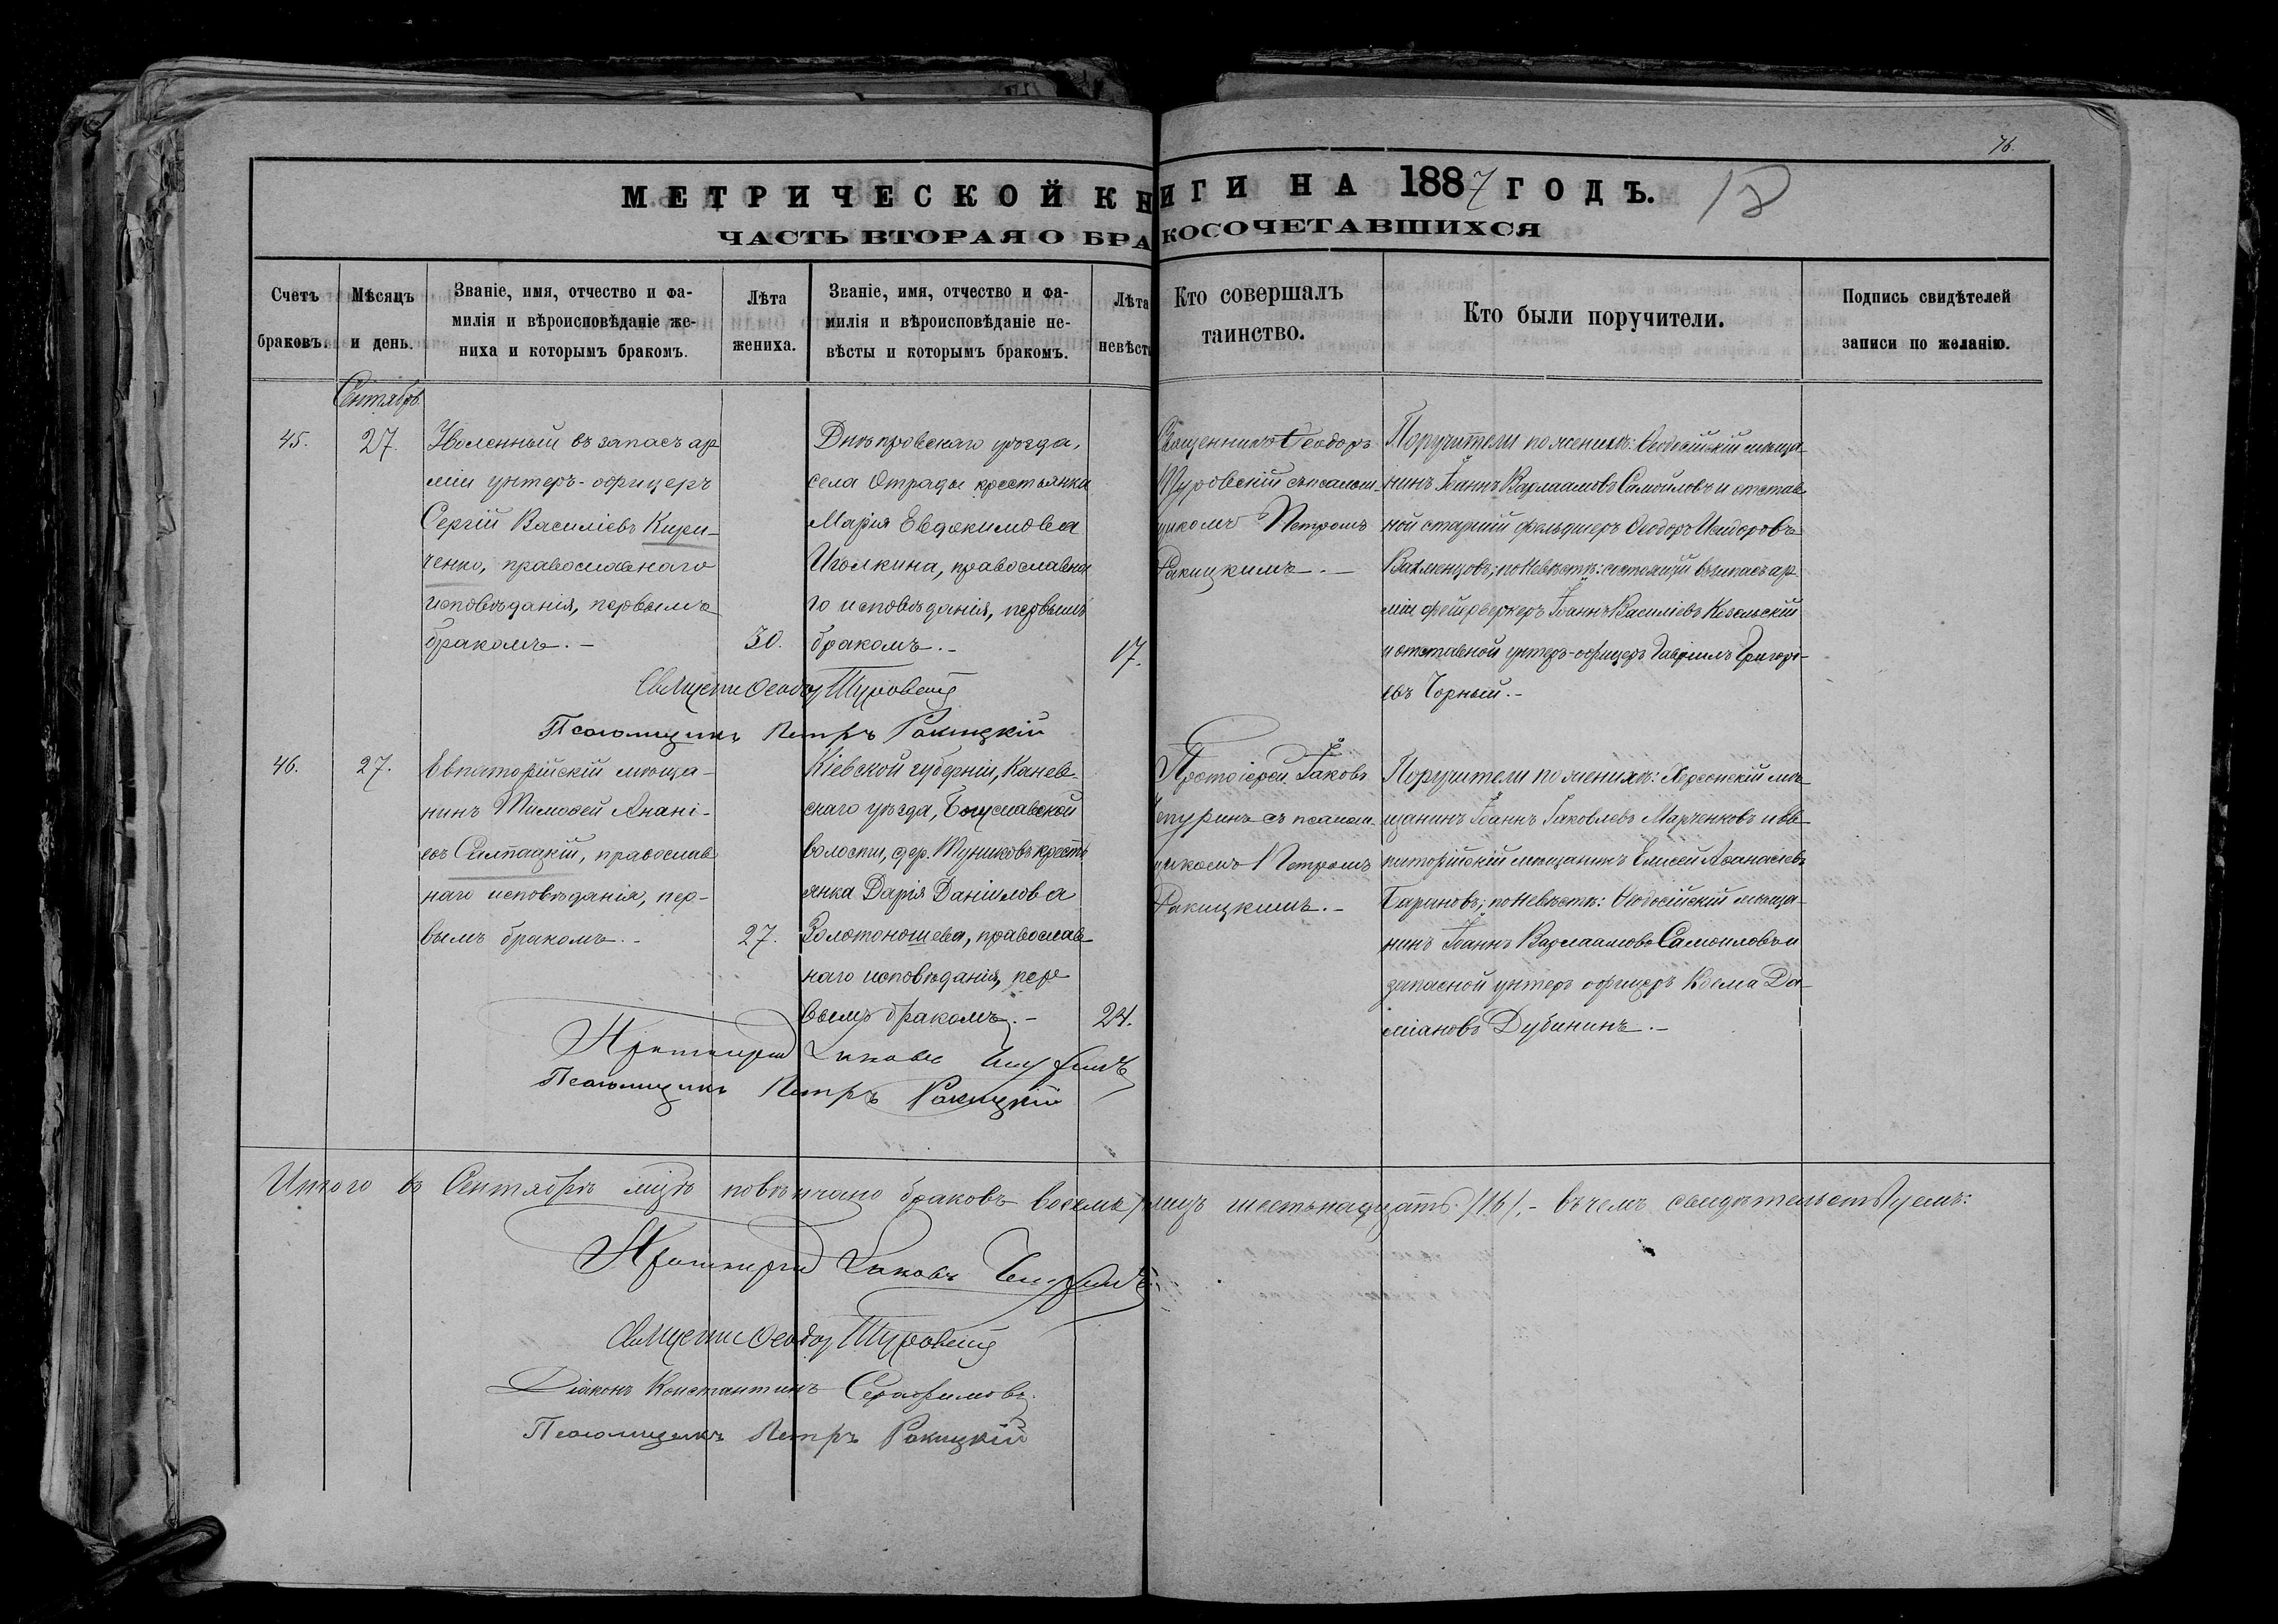 76.
МЕТРИЧЕСКОЙ КНИГИ НА 1887 ГОДЪ.
ЧАСТЬ ВТОРАЯ О БРАКОСОЧЕТАВШИХСЯ
Счетъ браковъ.
Мѣсяцъ и день.
Званіе, имя, отчество и фа-
милія и вѣроисповѣданіе же-
ниха и которымъ бракомъ.
Лѣта жениха.
Званіе, имя, отчество и фа-
милія и вѣроисповѣданіе не-
вѣсты и которымъ бракомъ.
Лѣта невѣсты
Кто совершалъ
таинство.
Кто были поручители.
Подпись свидѣтелей
записи по желанію.
Сентябрь
45.
27.
Уволенный въ запасъ ар
міи унтеръ-офицеръ
Сергій Василіевъ Кири-
ченко, православнаго
исповѣданія, первымъ
бракомъ.-
30.
Днѣпровскаго уѣзда,
села Отрады крестьянка
Марія Евдокимова
Иголкина, православна
го исповѣданія, первымъ
бракомъ.-
17.
Священникъ Ѳеодоръ
Туровскій съ псалом-
щикомъ Петромъ
Ракицкимъ.-
Поручители по женихѣ: Ѳеодосійскій мѣща-
нинъ Іоаннъ Варлаамовъ Самойловъ и отстав
ной старшій фельдшеръ Ѳеодоръ Исидоровъ
по невѣстѣ: состоящій въ запасѣ ар
міи фейерверкеръ Іоаннъ Василіевъ
и отставной унтеръ-офицеръ Гавріилъ Григорі-
евъ Чорный.-
Священникъ Ѳеодоръ Туровскій
Псаломщикъ Петръ Ракицкій
46.
27.
Евпаторійскій мѣща-
нинъ Тимоѳей Анані-
евъ православ
наго исповѣданія, пер-
вымъ бракомъ.-
27.
Кіевской губерніи, Канев
скаго уѣзда, Богуславской
волости, дер. крестъ
янка Дарія Даніилова
Золотоношева, православ
наго исповѣданія, пер
вымъ бракомъ.-
24.
Протоіерей Іаковъ
Чепуринъ съ псалом-
щикомъ Петромъ
Ракицкимъ.-
Поручители по женихѣ: Херсонскій мѣ-
щанинъ Іоаннъ Іаковлевъ Марченковъ и Ев-
паторійскій мѣщанинъ Елисей Аѳанасіевъ
Барановъ; по невѣстѣ: Ѳеодосійскій мѣща-
нинъ Іоаннъ Варлаамовъ Самойловъ и
запасной унтеръ офицеръ Косма Да-
міановъ Дубининъ.-
Протоіерей Іаковъ Чепуринъ
Псаломщикъ Петръ Ракицкій
Итого въ Сентябрѣ мцѣ повѣнчано браковъ восемь, лицъ шестьнадцать /16/.- въ чемъ свидѣтельствуемъ:
Протоіерей Іаковъ Чепуринъ
Священникъ Ѳеодоръ Туровскій
Діаконъ Константинъ Серафимовъ
Псаломщикъ Петръ Ракицкій